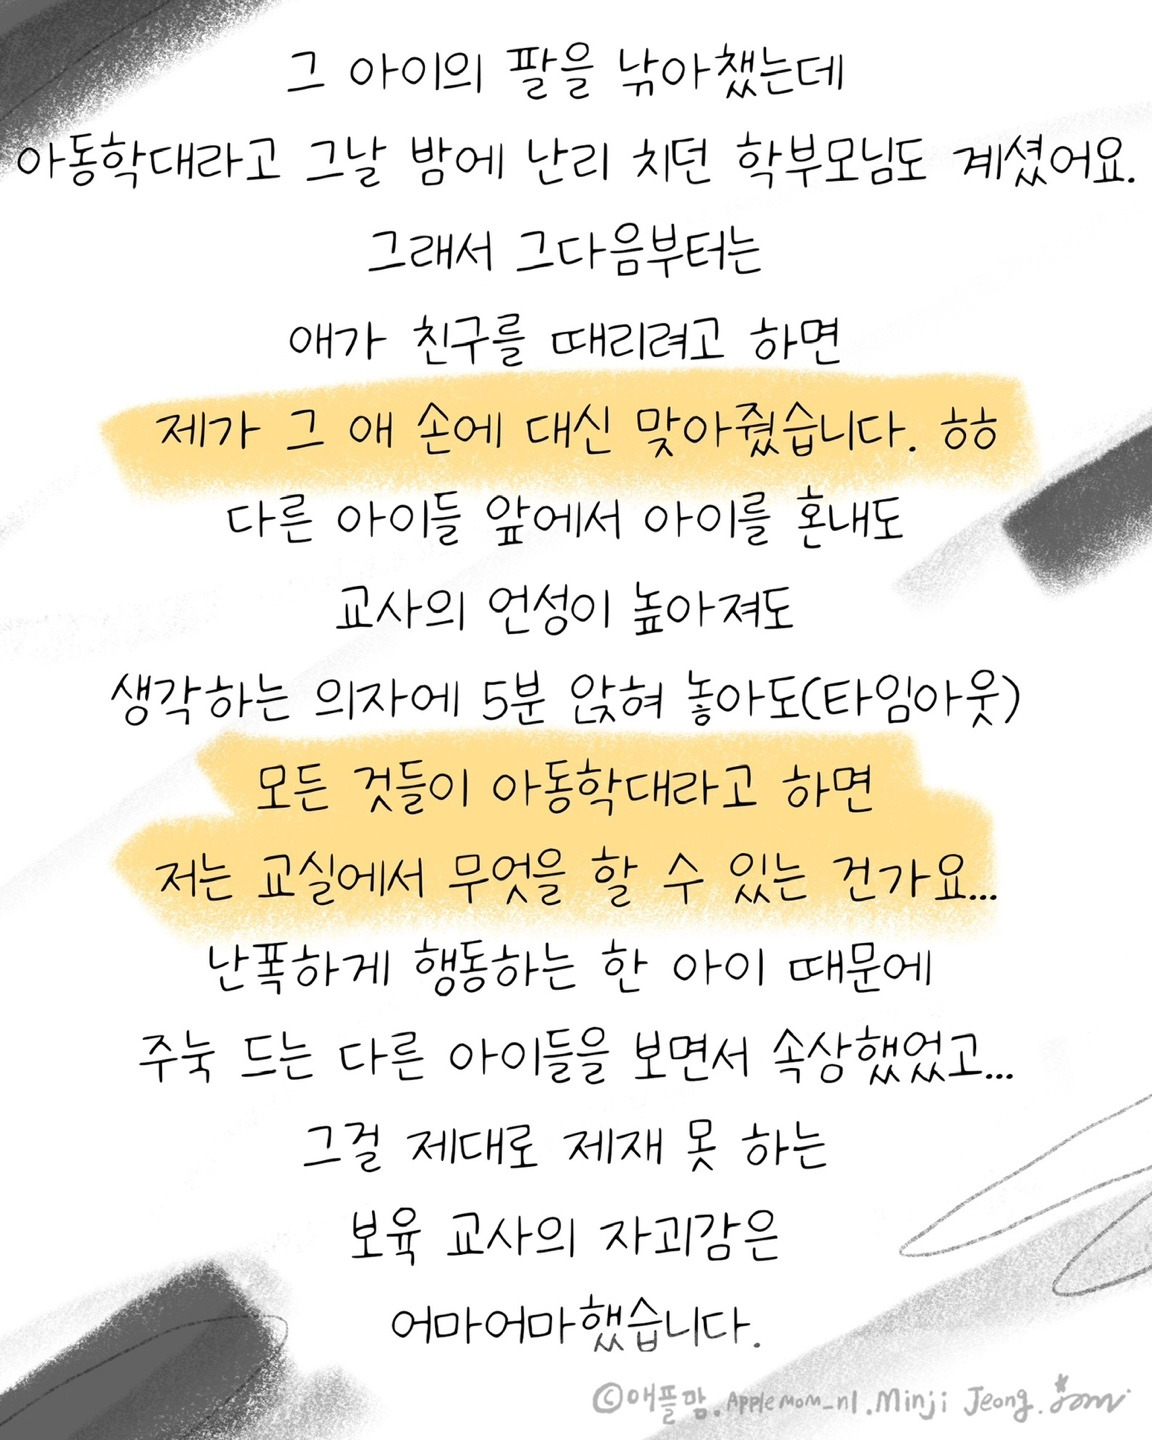 그 아이의 팔을 낚아챘는데
아동학대라고 그날 밤에 난리 치던 학부모님도 계셨어요.
그래서 그다음부터는
애가 친구를 때리려고 하면
제가 그 애 손에 대신 맞아줬습니다. ㅎㅎ
다른 아이들 앞에서 아이를 혼내도
교사의 언성이 높아져도
생각하는 의자에 5분 앉혀 놓아도(타임아웃)
모든 것들이 아동학대라고 하면
저는 교실에서 무엇을 할 수 있는 건가요...
난폭하게 행동하는 한 아이 때문에
주눅 드는 다른 아이들을 보면서 속상했었고...
그걸 제대로 제재 못 하는
보육 교사의 자괴감은
어마어마했습니다.
©애플맘.AppleMom_nl.Minji Jeong.